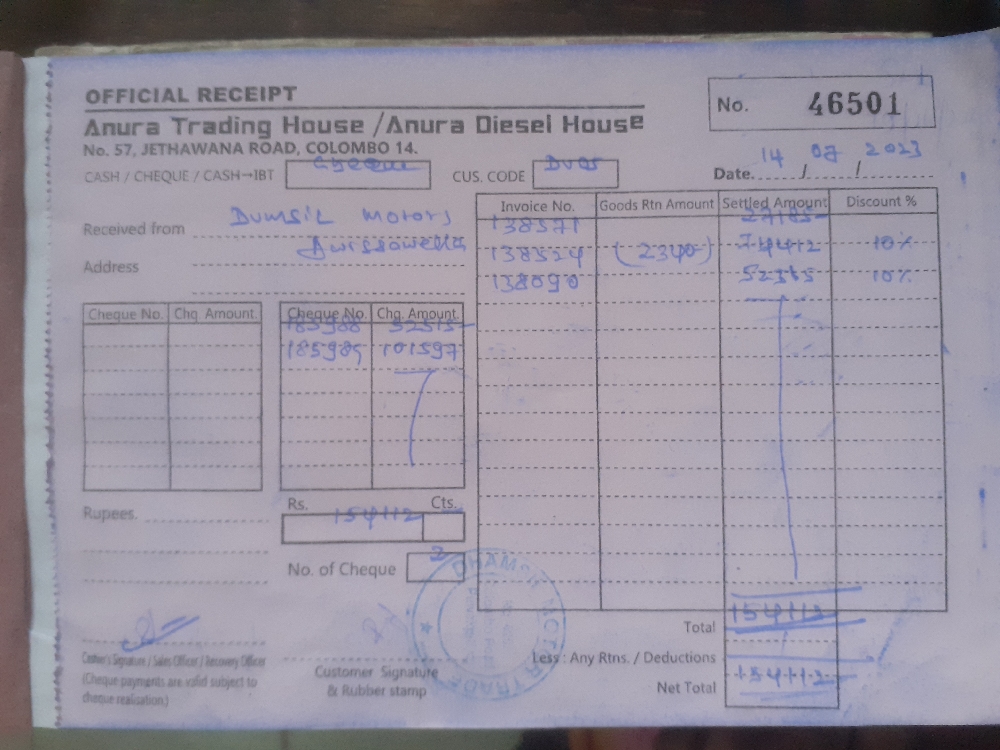 OFFICIAL RECEIPT
No. 46501
Anura Trading House / Anura Diesel House
No. 57, JETHAWANA ROAD, COLOMBO 14.
CASH / CHEQUE / CASH→IBT Cheque CUS. CODE
Date 14 / 07 / 2023
Received from DUMSIL MOTORS
Address
Invoice No. Goods Rtn Amount Settled Amount Discount %
138571 27185
138524 (2340) 74412 10%
138090 52565 10%
Cheque No. Chq Amount. Cheque No. Chq. Amount.
185988 52515
185989 101597
Rupees. Rs. Cts.
154112
No. of Cheque 2
Total 154112
Less : Any Rtns. / Deductions
Net Total 154112
Cashier's Signature / Sales Officer / Recovery Officer
(Cheque payments are valid subject to
cheque realisation.)
Customer Signature
& Rubber stamp